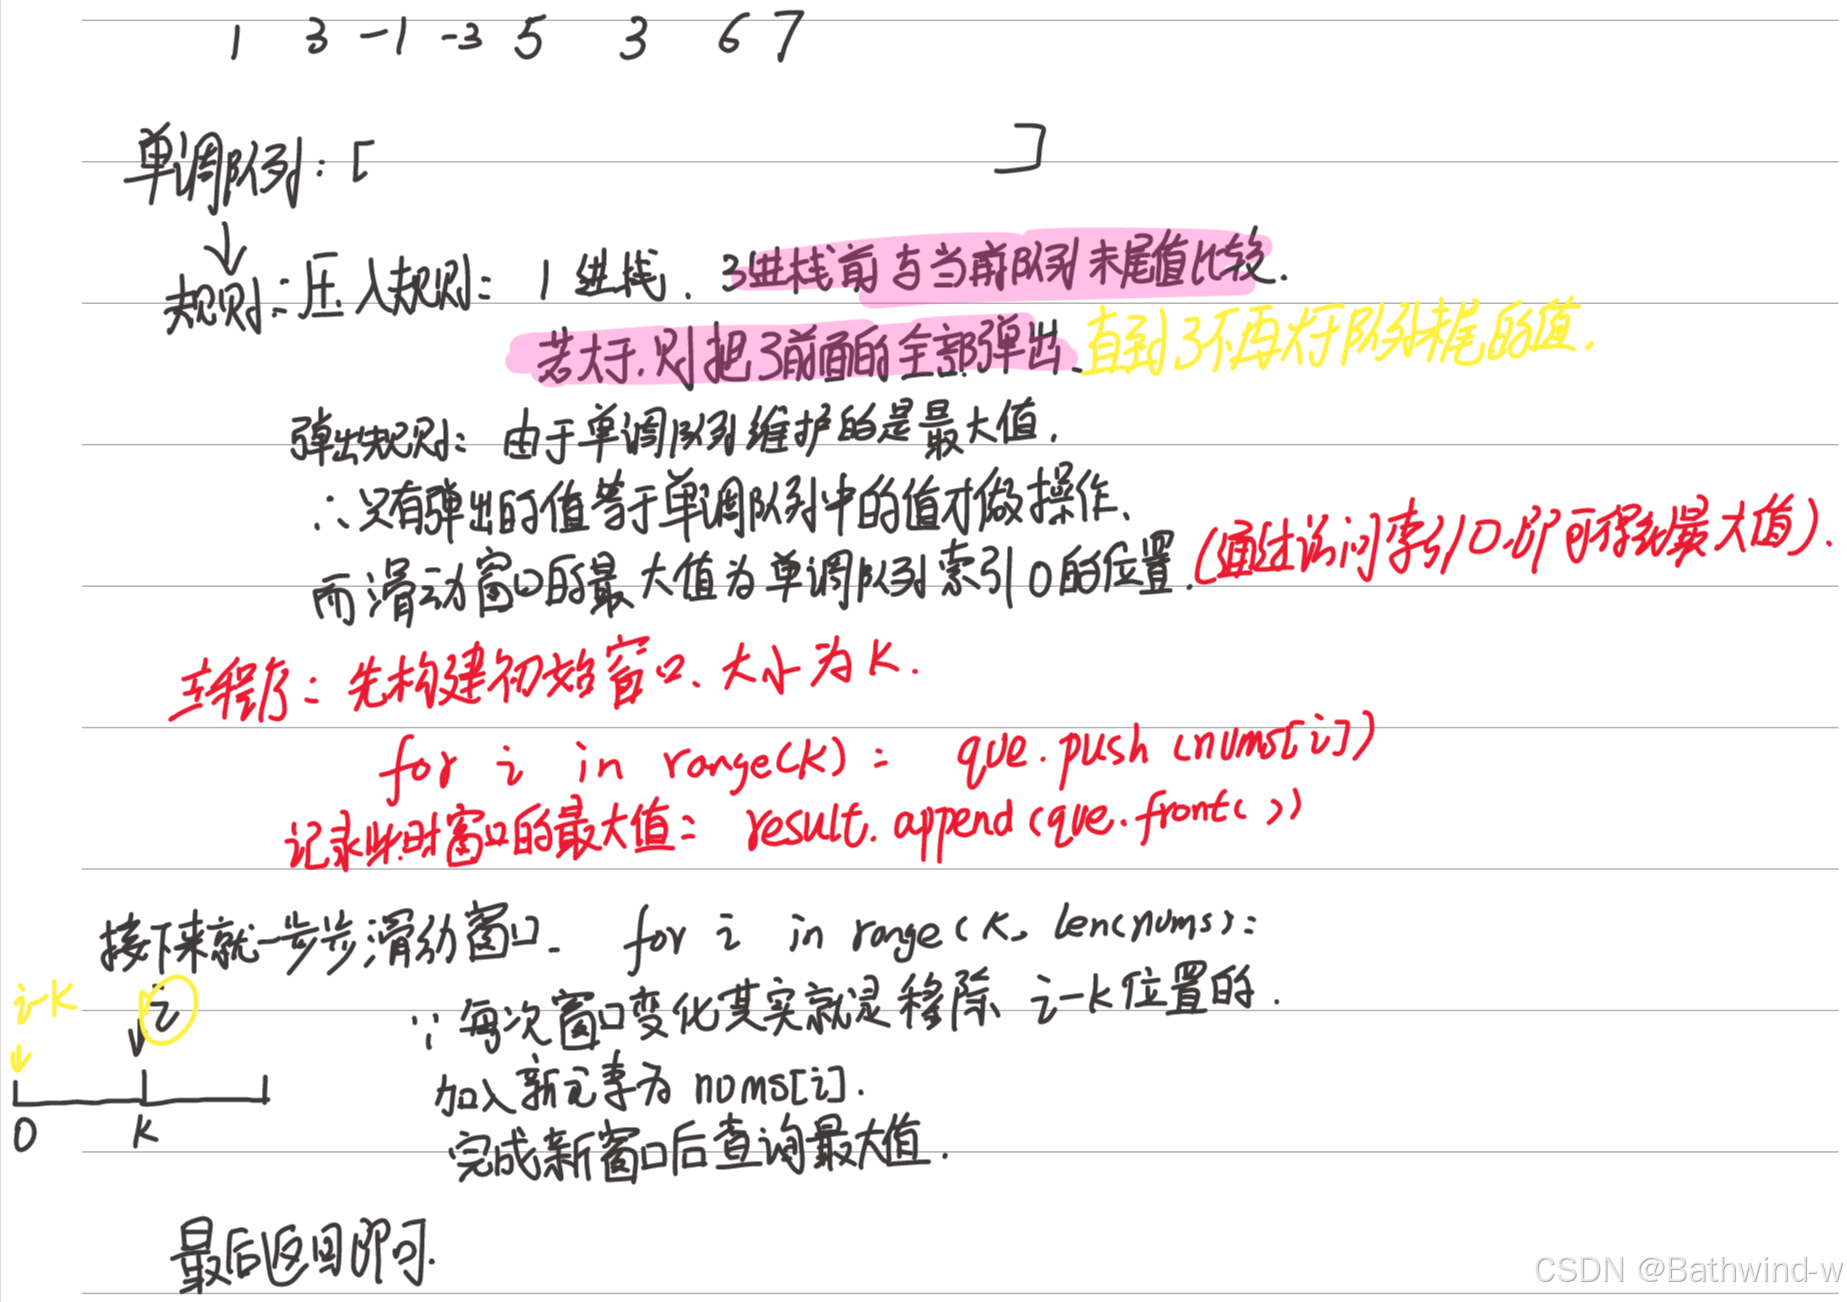 1 3 -1 -3 5 3 6 7
单调队列: [ ]
规则: 压入规则: 1 进栈. 3进栈前与当前队列末尾值比较.
若大于.则把3前面的全部弹出、直到3不再大于队列末尾的值.
弹出规则: 由于单调队列维护的是最大值.
∴只有弹出的值等于单调队列中的值才做操作.
而滑动窗口的最大值为单调队列索引0的位置.(通过访问索引0.即可得到最大值).
主程序: 先构建初始窗口、大小为K.
for i in range(K): que.push(nums[i])
记录此时窗口的最大值: result.append(que.front())
接下来就一步步滑动窗口. for i in range(K, len(nums):
∵每次窗口变化其实就是移除 i-K位置的.
i-K i
加入新元素为 nums[i].
0 K
完成新窗口后查询最大值.
最后返回即可.
CSDN @Bathwind-w